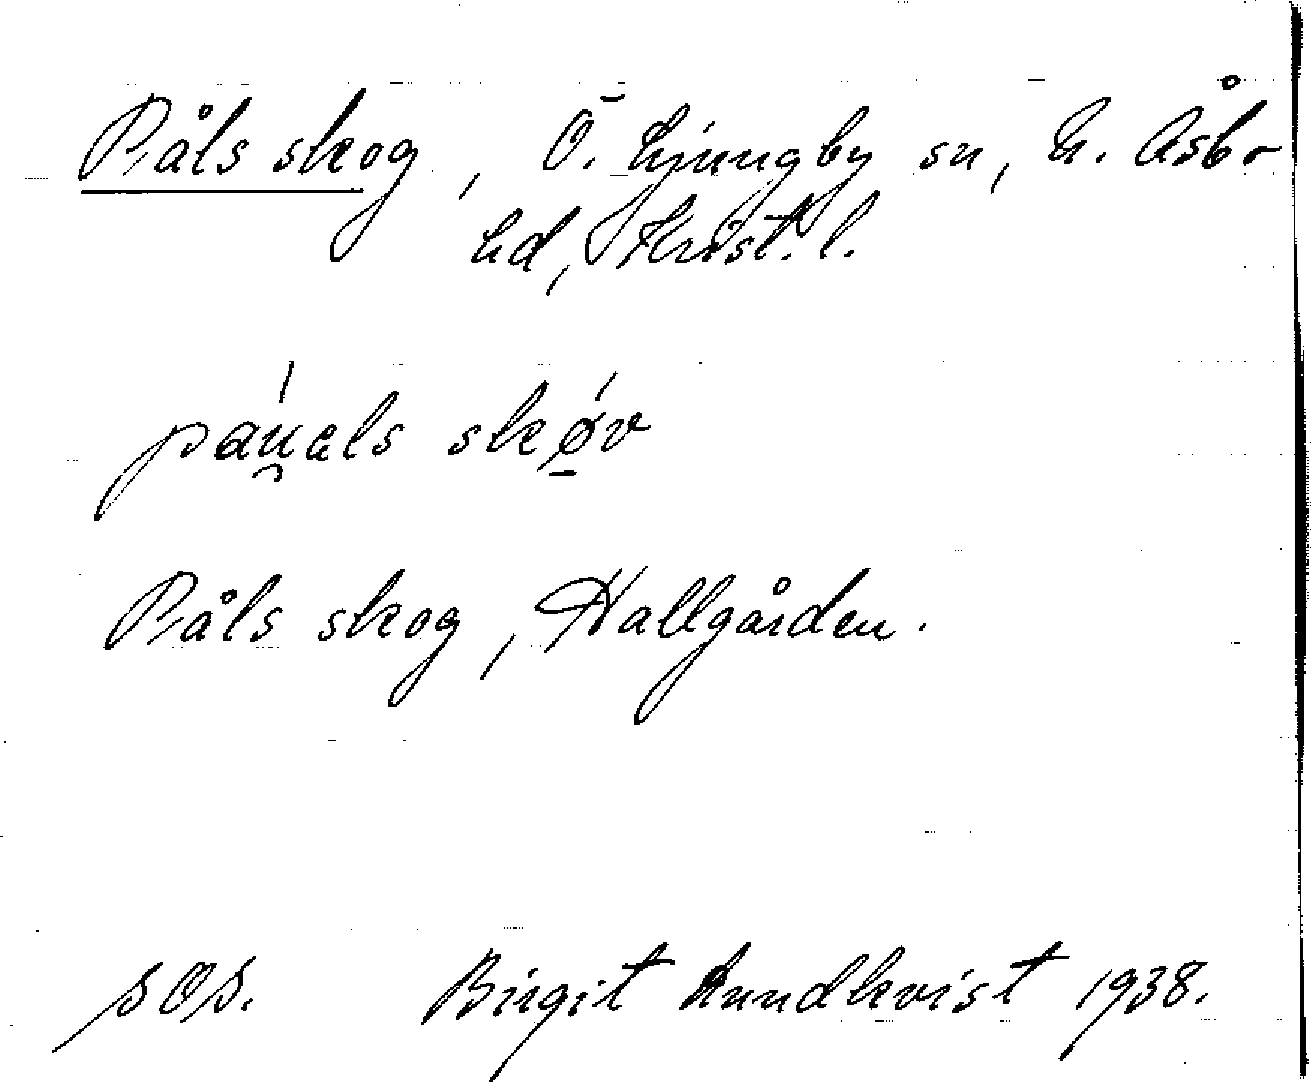 Påls skog, Ö. Ljungby sn, N. Åsbo
hd, Krist. l.
páu̯als skǿv
Påls skog, Hallgården.
sos. Birgit Lundkvist 1938.